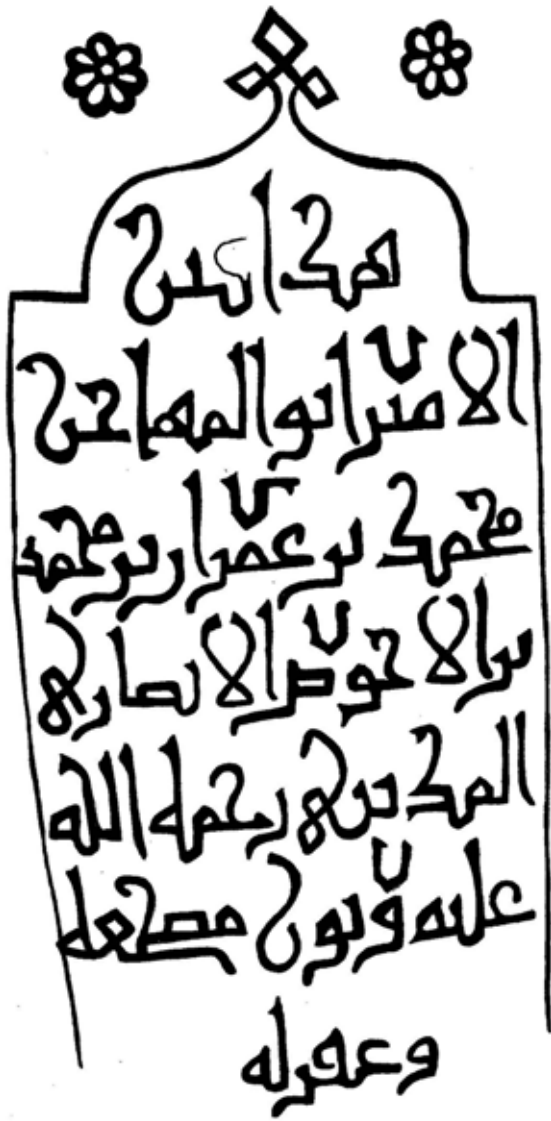 هذا قبر
الامير ابو المهاجر
محمد بن عمران بن محمد
بن الاحوص الانصاري
المدني رحمه الله
عليه ونور مضجعه
وغفر له